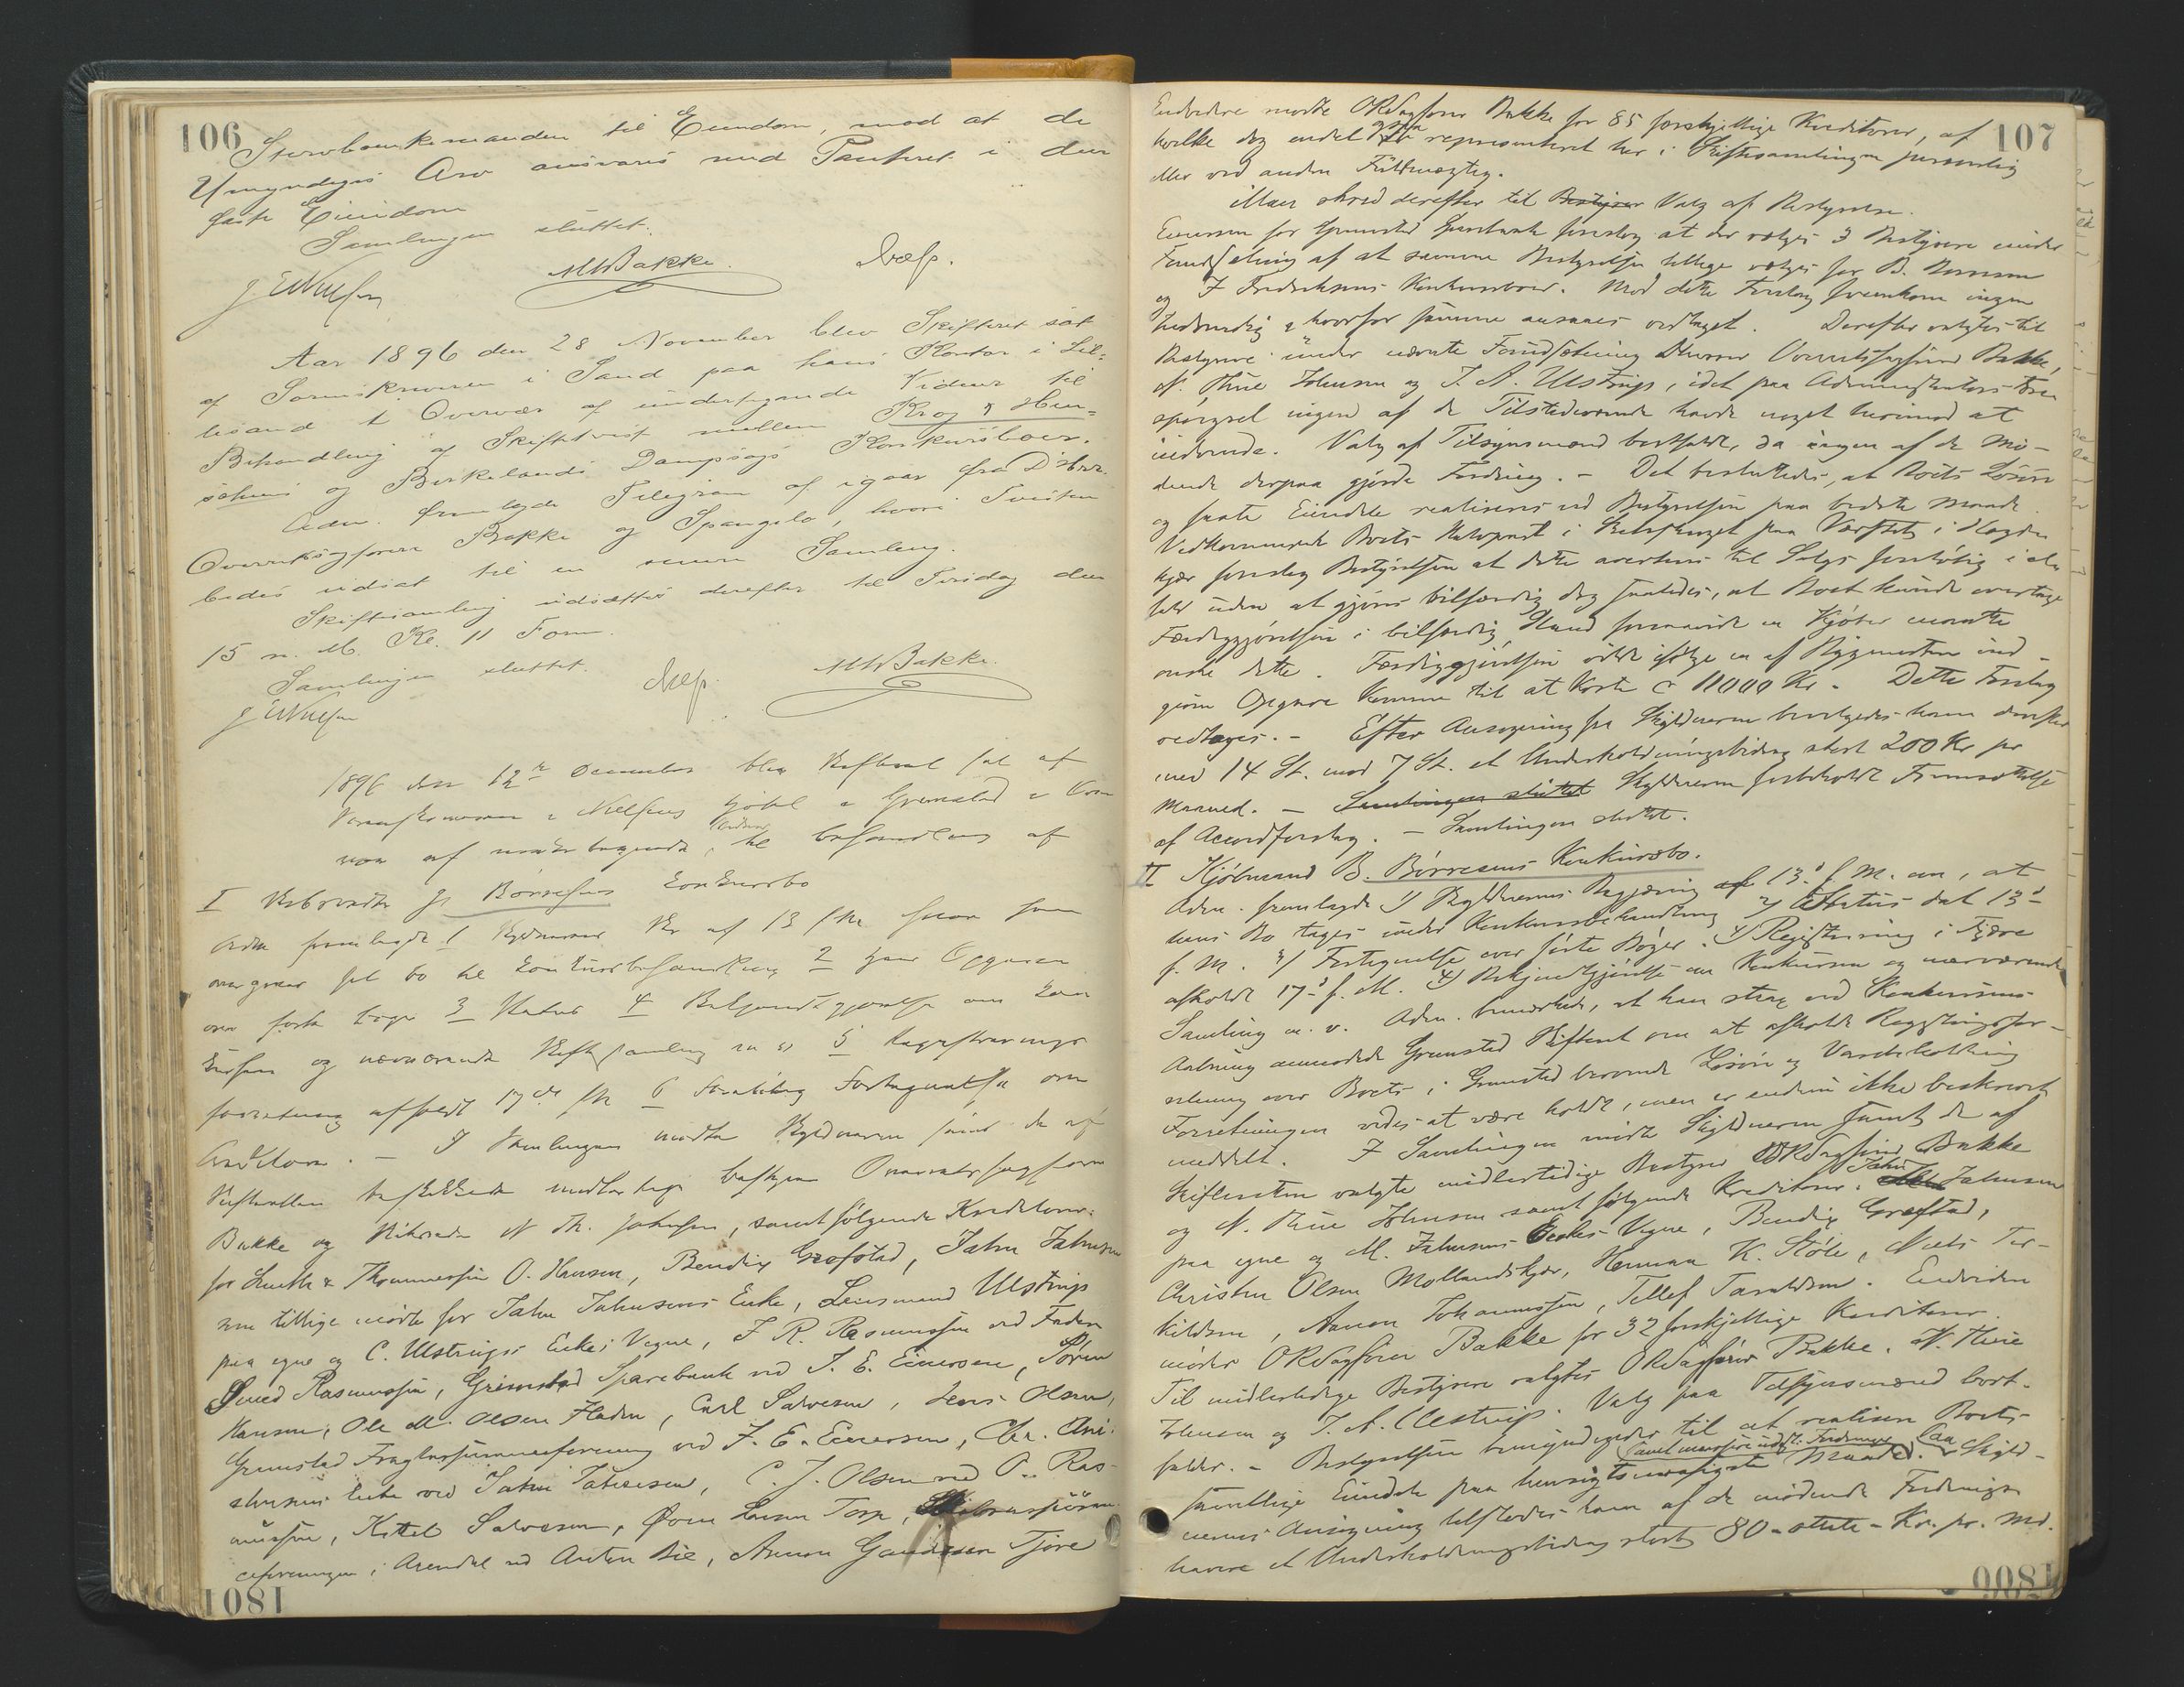 106
Stervboenkemanden til Eiendom, mod at de
Umyndiges Arv ansvares med Panteret i den
faste Eiendom
Samlingen sluttet.
MWBakke.
Aar 1896 den 28 November blev Skifteret sat
af Sorenskriveren i Sand paa hans Kontor i Lil-
lesand i Overvær af undertegnede Vidner til
Behandling af Skiftetvist mellem Krog & Hen-
og Birkelands Dampsags Konkursboer.
Adm. fremlagde Telegram af igaar fra D'Hrr.
Overretssagfører Bakke og Spangelo, hvori Tvisten
bedes udsat til en senere Samling.
Skiftesamling udsættes derefter til Tirsdag den
15 n. M. Kl. 11 Form.
Samlingen sluttet.
MWBakke.
1896 den 12 December blev Skifteret sat af
Sorenskriveren i Nielsens Hotel i Grimstad i Over
vær af undertegnede Vidner, til Behandling af
I Konkursbo
Adm fremlagde 1
over gives sit bo til Konkursbehandling 2 hans Opgaver
over førte Bøger 3 Status 4 Bekjendtgjørelse om Kon
kursen og nærværende Skiftesamling m v 5 Registrerings
forretning afholdt 17de 6 Foreløbig Fortegnelse over
Creditorer. – I Samlingen mødte Skyldneren samt de af
Skifteretten beskikkede midlertidige bestyrere Overretssagfører
Bakke og N Th. Johnsen, samt følgende Kreditorer:
for Smith & Thommesen O. Hansen, Bendix Grefstad, Jahn Jahnsen
som tillige mødte for Jahn Jahnsens Enke, Lensmand Ulstrup
paa egne og C. Ulstrups Enkes Vegne, J. R. Rasmussen ved Faderen
Rasmussen, Grimstad Sparebank ved J. E. Evensen, Søren
Hansen, Ole M. Olsen Hladen, Carl Salvesen, Jens Olsen,
Grimstad ved J. E. Evensen, Chr. Chri-
stensens Enke ved Jahn Jahnsen, C. J. Olsen ved O. Ras-
mussen, Kittel Salvesen, Torp,
i Arendal ved Anton Bie, Aanon Gundersen Tjore
1081
107
Endvidere mødte ORSagfører Bakke for 85 forskjellige Kreditorer, af
hvilke dog endel ogsaa er repræsenteret her i Skiftesamlingen personlig
eller ved anden Fuldmægtig.
Man skred derefter til Bestyrer Valg af Bestyrelse.
Evensen for Grimstad Sparebank foreslog at der vælges 3 Bestyrere under
Forudsætning af at samme Bestyrelse tillige vælges for B. Børresen
og J Fredriksens Konkursboer. Mod dette Forslag fremkom ingen
Indvending, hvorfor samme ansaaes vedtaget. Derefter valgtes til
Bestyrere under nævnte Forudsætning Herrer Overretssagfører Bakke,
N. Thue Johnsen og J. A. Ulstrup, idet paa Administrators Fore
spørgsel ingen af de Tilstedeværende havde noget herimod at
indvende. Valg af Tilsynsmænd bortfaldt, da ingen af de Mø-
dende derpaa gjorde Fordring. – Det besluttedes, at Boets Løsøre
og faste Eiendele realiseres ved Bestyrelsen paa bedste Maade.
Vedkommende Boets Halvpart i Skibsskroget paa Værftet i
foreslog Bestyrelsen at dette averteres til Salgs
uden at gjøres seilfærdig dog saaledes, at Boet kunde overtage
Færdiggjørelsen i seilfærdig Stand forsaavidt en Kjøber maatte
ønske dette. Færdiggjørelsen vilde ifølge en af Bygmesteren ind-
given Opgave komme til at koste c 11000 Kr. – Dette Forslag
vedtoges. – Efter Ansøgning fra Skyldneren bevilgedes ham derefter
med 14 St. mod 7 St. et Underholdningsbidrag stort 200 Kr pr
Maaned. – Samlingen sluttet Skyldneren forbeholdt Fremsættelse
af Accordforslag. – Samlingen sluttet.
II Kjøbmand B. Børresens Konkursbo.
Adm. fremlagde 1) Skyldnerens Begjæring af 13. f. M. om, at
hans Bo tages under Konkursbehandling 2) Status dat 13
f. M. 3) Fortegnelse over førte Bøger. 4) Registrering i Fjære
afholdt 17 f. M. 4) Bekjendtgjørelse om Konkursen og nærværende
Samling m. v. Adm. bemærkede, at han strax ved Konkursens
Aabning anmodede Grimstad Skifteret om at afholde Registreringsfor-
retning over Boets i Grimstad beroende Løsøre og Varebeholdning
Forretningen vides at være holdt, men er endnu ikke beskreven
meddelt. I Samlingen mødte Skyldneren samt de af
Skifteretten valgte midlertidige Bestyrere ORSagfører Bakke
og N. Thue Johnsen samt følgende Kreditorer: Jahn Jahnsen
paa egne og M. Jahnsens Enkes Vegne, Bendix Grefstad,
Christen Olsen Mollandskjær, Herman K. Støle, Niels Ter-
kildsen, Aanon Johannessen, Tellef Taraldsen. Endvidere
møder ORSagfører Bakke for 32 forskjellige Kreditorer.
Til midlertidige Bestyrere valgtes ORSagfører Bakke, N. Thue
Johnsen og J. A. Ulstrup. Valg paa Tilsynsmænd bort-
faldt. – Bestyrelsen bemyndigedes til at realisere Boets
samt udest. Fordringer
samtlige Eiendele paa hensigtsmæssigste Maade. Paa Skyld-
nerens Ansøgning tilstodes ham af de mødende Fordrings-
havere et Underholdningsbidrag stort 80 – otteti – Kr. pr. Md.
1800